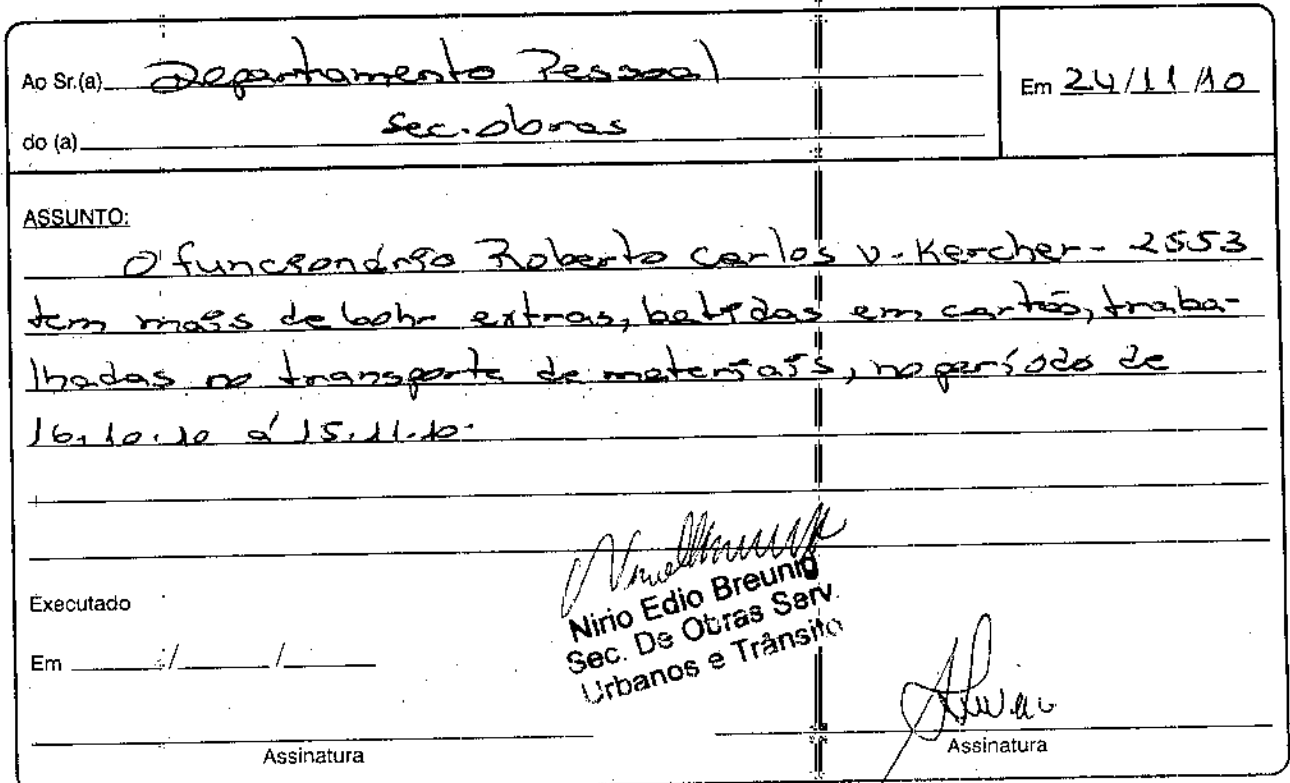 Ao Sr.(a) Departamento Pessoal
Em 24/11/10
do (a) Sec. obras
ASSUNTO:
O funcionário Roberto Carlos V. Kercher - 2553
tem mais de 60hr extras, batidas em cartão, traba-
lhadas no transporte de materiais, no período de
16.10.10 á 15.11.10.
Executado
Nirio Edio Breunig
Sec. De Obras Serv.
Urbanos e Trânsito
Em / /
Assinatura
Assinatura